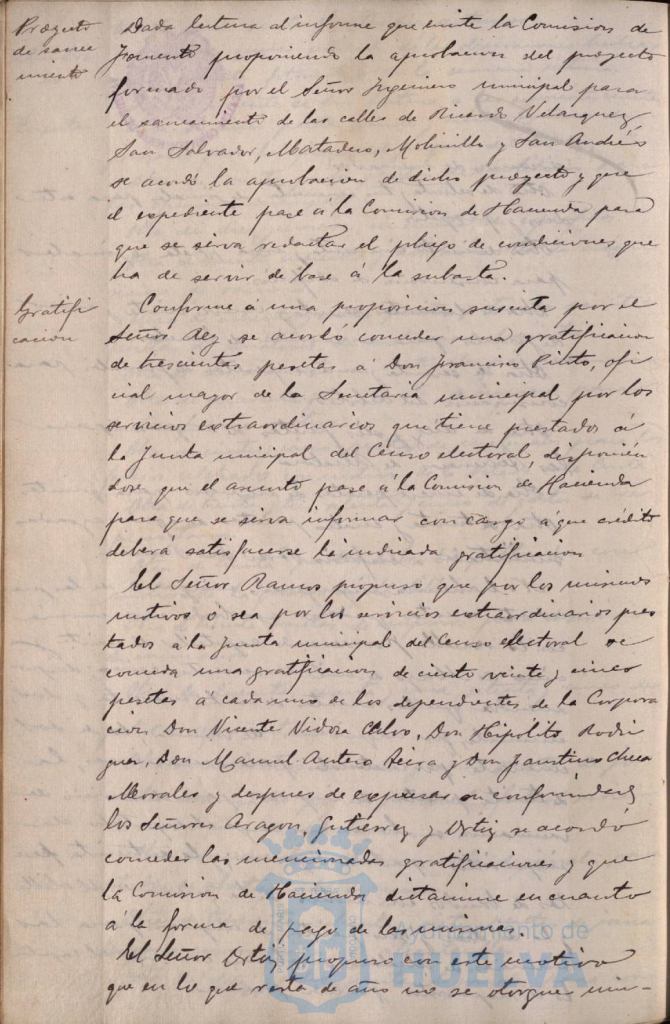 Proyecto
de sanea
miento
Dada lectura al informe que emite la Comision de
Fomento proponiendo la aprobacion del proyecto
formado por el Señor Ingeniero municipal para
el saneamiento de las calles de Ricardo Velazquez,
San Salvador, Matadero, Molinillo y San Andrés
se acordó la aprobacion de dicho proyecto y que
el expediente pase á la Comision de Hacienda para
que se sirva redactar el pliego de condiciones que
ha de servir de base á la subasta.
Gratifi
cacion
Conforme á una proposicion suscrita por el
Señor Rey se acordó conceder una gratificacion
de trescientas pesetas á Don Francisco Pinto, ofi
cial mayor de la Secretaria municipal por los
servicios extraordinarios que tiene prestados á
la Junta municipal del Censo electoral, disponién
dose que el asunto pase á la Comision de Hacienda
para que se sirva informar con cargo á que crédito
deberá satisfacerse la indicada gratificacion
El Señor Ramos propuso que por los mismos
motivos ó sea por los servicios extraordinarios pres
tados á la Junta municipal del Censo electoral se
conceda una gratificacion de ciento veinte y cinco
pesetas á cada uno de los dependientes de la Corpora
cion Don Vicente Vidosa Calvo, Don Hipólito Rodri
guez, Don Manuel Antero y Don Faustino Checa
Morales y despues de expresar su conformidad
los Señores Aragon, Gutierrez y Ortiz se acordó
conceder las mencionadas gratificaciones y que
la Comision de Hacienda dictamine en cuanto
á la forma de pago de las mismas.
El Señor Ortiz propuso con este motivo
que en lo que resta de año no se otorguen nin-
Ayuntamiento de
HUELVA